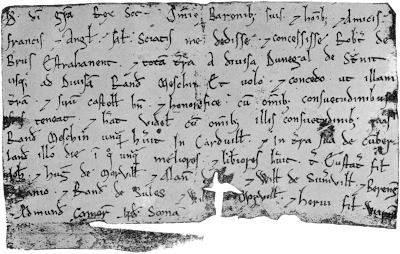 D. di gra Rex Scott. Omib; Baronib; suis. & hoib; & Amicis.
Francis & Angl. sal. Sciatis me dedisse & concessisse Robto de
Brus Estrahanent & totã trã A divisa Dunegal de Stnit
usq; ad divisã Rand Meschin. Et volo & concedo ut illam
trã & suũ castell bñ & honorifice cũ omib; consuetudinibus
teneat & hat videl cũ omib; illis consuetudinib;
Rand Meschin unq; huit in Carduill & in trã sua de Cuber
land illo die i q unq; meliores & libiores huit. T. Eustac fil
Joh & hug de Morvill & Alan & Will de Sumvill & Bereng
& Rand de Sules & W Morvill & hervi fil
& Edmund camer. Ap Scona